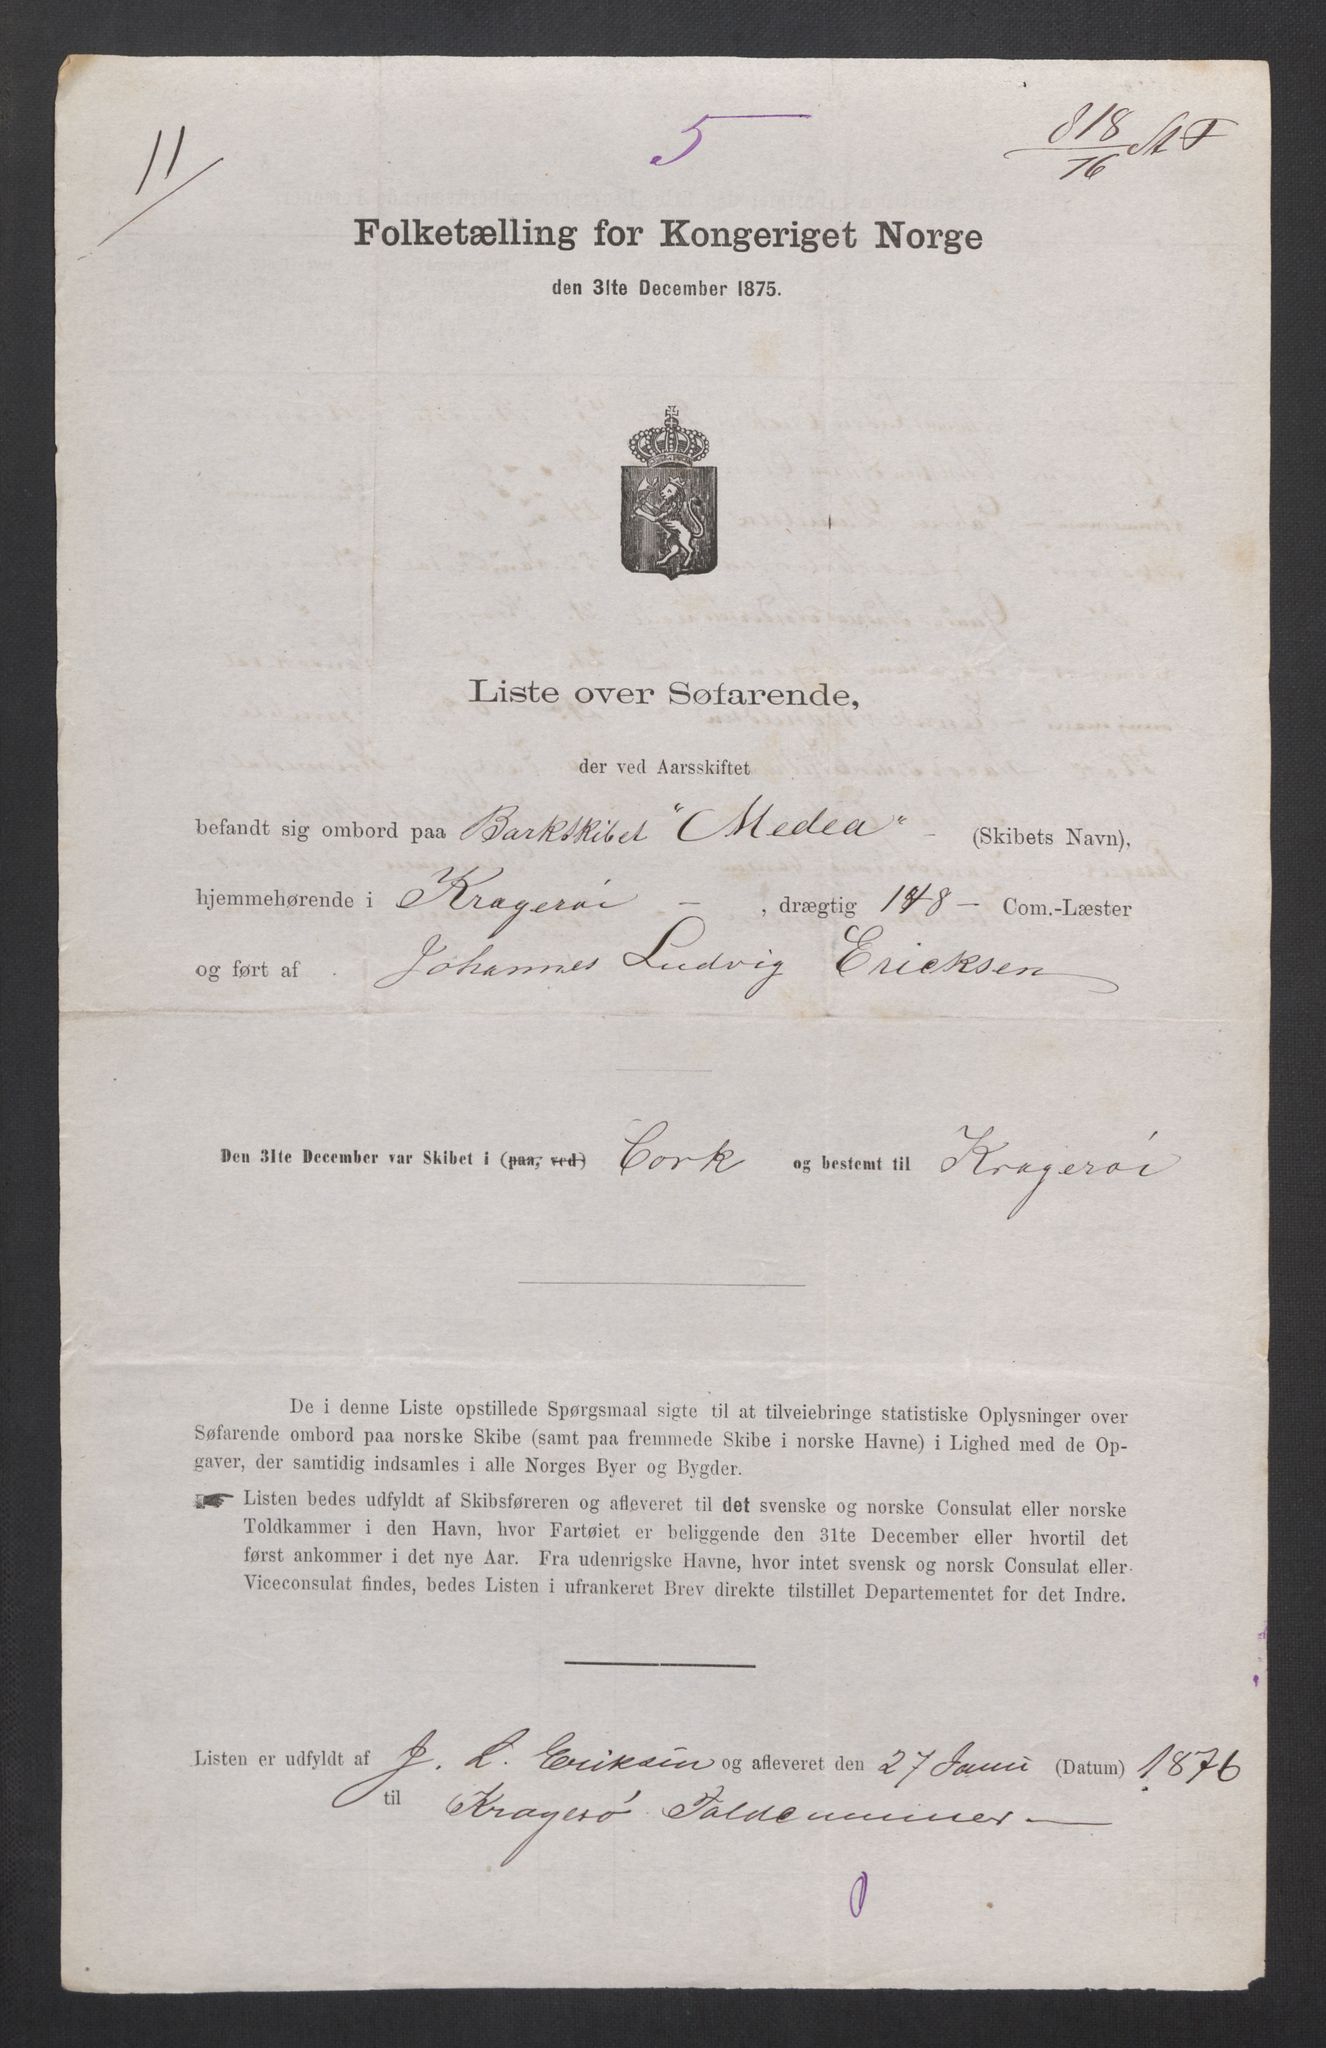 11
5
818
76
Folketælling for Kongeriget Norge
den 31te December 1875.
Liste over Søfarende,
der ved Aarsskiftet
befandt sig ombord paa Barkskibet "Medea" - (Skibets Navn),
hjemmehørende i Kragerøi - , drægtig 148 - Com.-Læster
og ført af Johannes Ludvig Ericksen
Den 31te December var Skibet i (paa, ved) Cork og bestemt til Kragerøi
De i denne Liste opstillede Spørgsmaal sigte til at tilveiebringe statistiske Oplysninger over
Søfarende ombord paa norske Skibe (samt paa fremmede Skibe i norske Havne) i Lighed med de Op-
gaver, der samtidig indsamles i alle Norges Byer og Bygder.
☛ Listen bedes udfyldt af Skibsføreren og afleveret til det svenske og norske Consulat eller norske
Toldkammer i den Havn, hvor Fartøiet er beliggende den 31te December eller hvortil det
først ankommer i det nye Aar. Fra udenrigske Havne, hvor intet svensk og norsk Consulat eller
Viceconsulat findes, bedes Listen i ufrankeret Brev direkte tilstillet Departementet for det Indre.
Listen er udfyldt af J. L. Eriksen og afleveret den 27 Janu (Datum) 1876
til Kragerø